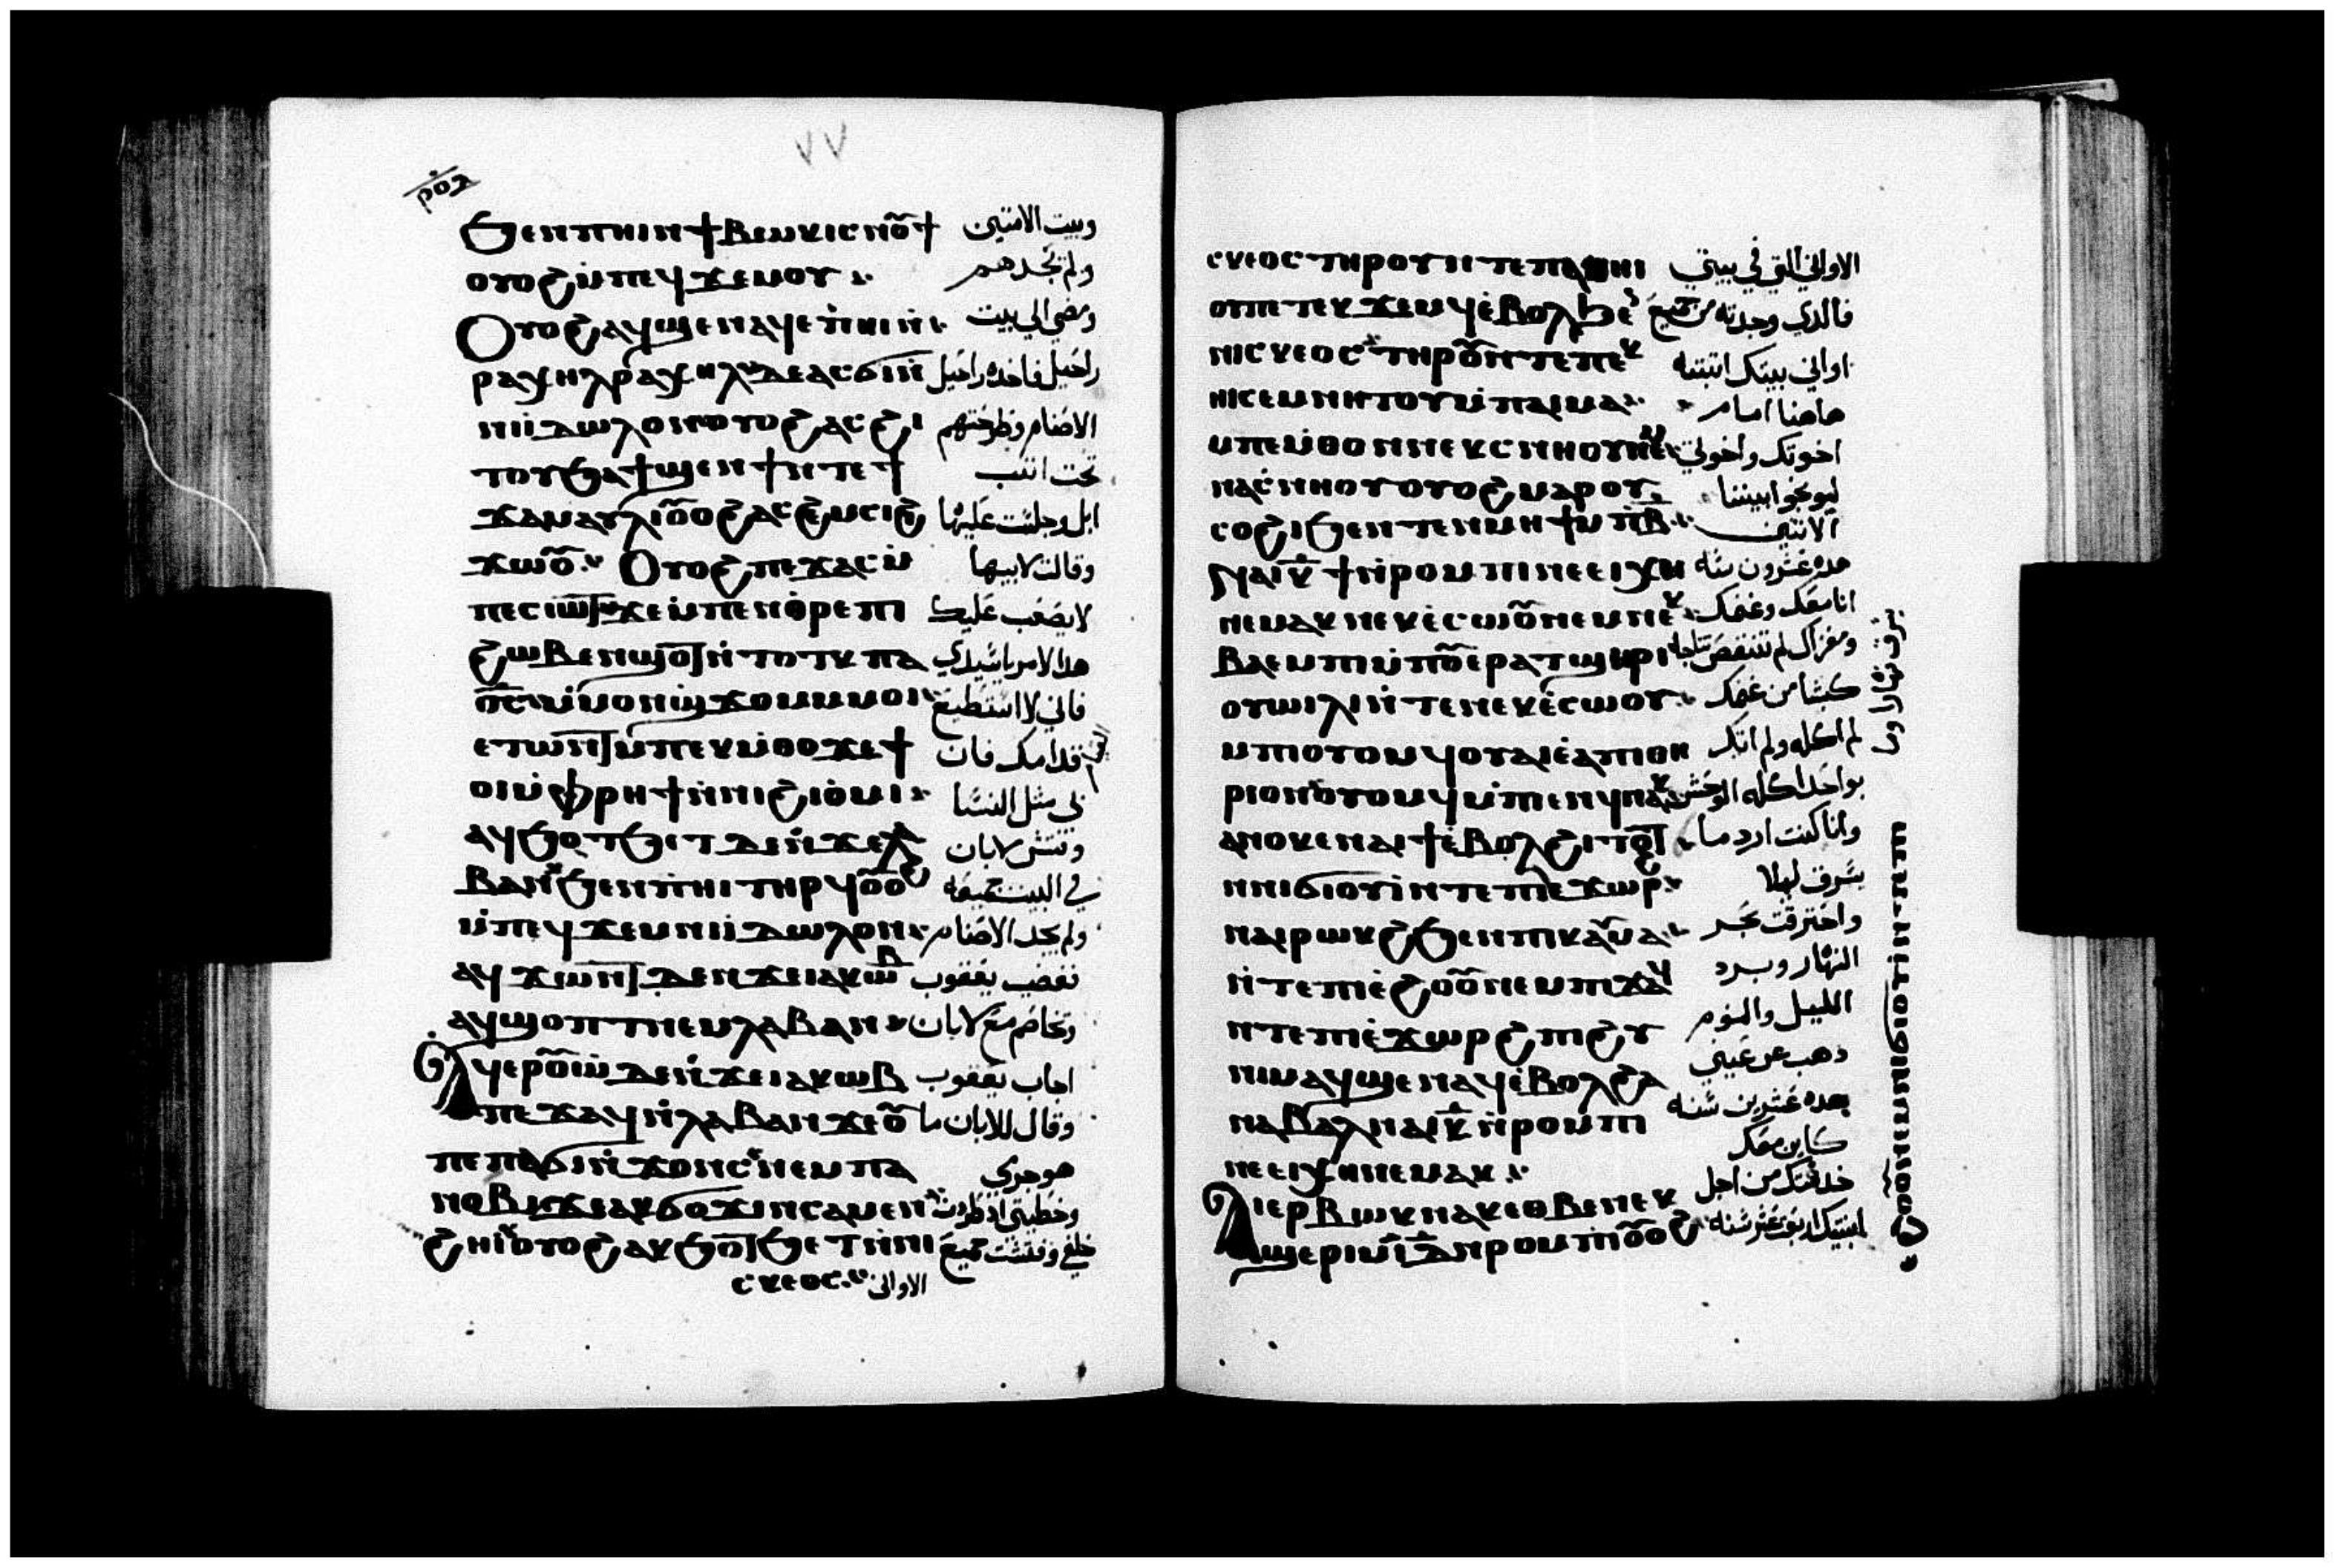 ٧٧
ⲣⲟⲍ
ϧⲉⲛⲡⲏⲓⲛϯⲃⲱⲕⲓⲥⲛⲟ̄ϯ وبيت الامتين
ⲟⲩⲟϩⲙ̇ⲡⲉϥϫⲉⲙⲟⲩ ولم تجدهم
Ⲟⲩⲟϩⲁϥϣⲉⲛⲁϥⲉⲡ̇ⲏⲓⲛ̇ ومضي الي بيت
ⲣⲁⲭⲏⲗⲣⲁⲭⲏⲗⲇⲉⲁⲥϭⲓⲛ̇ راحيل فاخده راحيل
ⲛⲓⲓⲇⲱⲗⲟⲛⲟⲩⲟϩⲁⲥϩⲓ الاصنام وطرحتهم
ⲧⲟⲩϧⲁϯϣⲉⲛϯⲛⲧⲉϯ تحت اتتب
ϫⲁⲙⲁⲩⲗⲓⲟ̄ⲟϩⲁⲥϩⲉⲙⲥⲓϩ ابل وجلست عليها
ϫⲱⲟ̄ Ⲟⲩⲟϩⲡⲉϫⲁⲥⲙ̇ وقالت لابيها
ⲡⲉⲥⲓⲱ̄ⲧϫⲉⲙ̇ⲡⲉⲛⲑ̇ⲣⲉⲡⲓ لا يصعب عليك
ϩⲱⲃⲉⲛϣⲟ̄ⲧⲛ̇ⲧⲟⲧⲕⲡⲁ هدا الامر ياسيدي
ⲟ̄ⲥⲙ̇ⲙⲟⲛϣ̇ϫⲟⲙⲙⲙⲟⲓ فاني لا استطيع
ⲉⲧⲱⲛ̄ⲧⲙ̇ⲡⲉⲕⲙ̇ⲑⲟϫⲉϯ قدامك فان
ⲟⲓⲙ̇ⲫⲣⲏϯⲛ̇ⲛⲓϩⲓⲟ̇ⲙⲓ لي مثل النسا
ⲁϥϧⲟⲧϧⲉⲧⲇⲉⲛ̇ϫⲉⲗⲁ وفتش لابان
ⲃⲁⲛϧⲉⲛⲡⲓⲏⲓⲧⲏⲣϥⲟ̄ⲟϩ في البيت جميعه
ⲙ̇ⲡⲉϥϫⲉⲙⲛⲓⲓⲇⲱⲗⲟⲛ ولم يجد الاصنام
ⲁϥϫⲱⲛ̄ⲧⲇⲉⲛϫⲉⲓⲁⲕⲱ̄ⲃ فغضب يعقوب
ⲁϥϣⲟⲡⲧⲛⲉⲙⲗⲁⲃⲁⲛ وتخاصم مع لابان
Ⲁϥⲉⲣⲟ̄ⲱ̇ⲇⲉⲛ̇ϫⲉⲓⲁⲕⲱⲃ اجاب يعقوب
ⲡⲉϫⲁϥⲛ̇ⲗⲁⲃⲁⲛϫⲉⲟ̄ وقال للابان ما
ⲡⲉⲡⲁϭⲓⲛ̇ϫⲟⲛⲥⲛⲉⲙⲡⲁ هو جوري
ⲛⲟⲃⲓϫⲉⲁⲕϭⲟϫⲓⲛⲥⲁⲙⲉⲛ وخطيتي اذ طردت
ϩⲏⲓⲟⲩⲟϩⲁⲕϧⲟ̄ⲧϧⲉⲧⲛ̇ⲛⲓ خلفي وفتشت جميع
ⲥⲕⲉⲟⲥ الاواني
ⲥⲕⲉⲟⲥⲧⲏⲣⲟⲩⲛⲧⲉⲡⲁⲏⲓ الاواني التي في بيتي
ⲟⲡⲉⲧⲉⲕϫⲉⲙϥⲉ̇ⲃⲟⲗϧⲉ̄ فالدي وجدته من جميع
ⲛⲓⲥⲕⲉⲟⲥⲧⲏⲣⲟ̄ⲛⲧⲉⲡⲉⲕ اواني بيتك اتبته
ⲏⲓⲥⲉⲙⲛⲏⲧⲟⲩⲙ̇ⲡⲁⲓⲙⲁ هاهنا امام
ⲙⲡⲉⲙ̇ⲑⲟⲛⲛⲉⲕⲥⲛⲏⲟⲩⲛⲉ̄ⲙ اخوتك واخوتي
ⲛⲁⲥ̇ⲛⲏⲟⲩⲟⲩⲟϩⲙⲁⲣⲟⲩ ليوبخوا بيننا
ⲥⲟϩⲓϧⲉⲛⲧⲉⲛⲙⲏϯⲙ̇ⲡⲃ̄ الاتنين
Ⲛⲁⲓⲕ̄ϯⲛ̇ⲣⲟⲙⲡⲓⲛⲉⲉⲓⲭⲏ هده عشرون سنه
ⲛⲉⲙⲁⲕⲛⲉⲕⲉ̇ⲥⲱⲟ̄ⲛⲉⲙⲛⲉⲕ انا معك وغنمك
ⲃⲁⲉⲙⲡⲓⲙ̇ⲡⲟ̄ⲉⲣⲁⲧϣⲏⲣⲓ ومعزاك لم تنتقص نتاجا
ⲟⲩⲱⲓⲗⲓⲛ̇ⲧⲉⲛⲉⲕⲉ̇ⲥⲱⲟⲩ كبشا من غنمك
ⲙⲡⲓⲟⲩⲟⲙϥⲟⲩⲁⲓⲉ̇ⲁⲡⲓⲑⲏ لم اكله ولم اتك
ⲣⲓⲟⲛⲟⲩⲟⲙϥⲙ̇ⲡⲉⲛϥⲛⲁⲕ بواحدا اكله الوحش
ⲁⲛⲟⲕⲉⲛⲁⲓϯⲉ̇ⲃⲟⲗϩⲓⲧⲟ̄ⲧ وانا كنت ارد ما
ⲛⲛⲓϭⲓⲟⲩⲓ̇ⲛⲧⲉⲡⲓⲉ̇ϫⲱⲣϩ يسرق ليلا
ⲛⲁⲓⲣⲱⲕϩϧⲉⲛⲡⲓⲕⲁⲩ̄ⲙⲁ واحترقت بحر
ⲛ̇ⲧⲉⲡⲓⲉ̇ϩⲟⲟ̄ⲛⲉⲙⲡⲓϫⲁϥ النهار وبرد
ⲛⲧⲉⲡⲓⲉ̇ϫⲱⲣϩⲡⲓϩⲩ الليل والنوم
ⲛⲓⲙⲁϥϣⲉⲛⲁϥⲉ̇ⲃⲟⲗϩⲁ دهب عن عيني
ⲛⲁⲃⲁⲗⲛⲁⲓⲕ̄ⲛ̇ⲣⲟⲙ̇ⲡⲓ هده عشرين سنه
ⲛⲉⲉⲓⲭⲏⲛⲉⲙⲁⲕ كاين معك
Ⲁⲓⲉⲣⲃⲱⲕⲛⲁⲕⲉⲑⲃⲉⲛⲉⲕ خدمتك من اجل
ϣⲉⲣⲓⲙ̄ⲓ̄ⲇ̄ⲛⲣⲟⲙⲡⲓⲟ̄ⲟϩ ابنتيك اربع عشر سنه